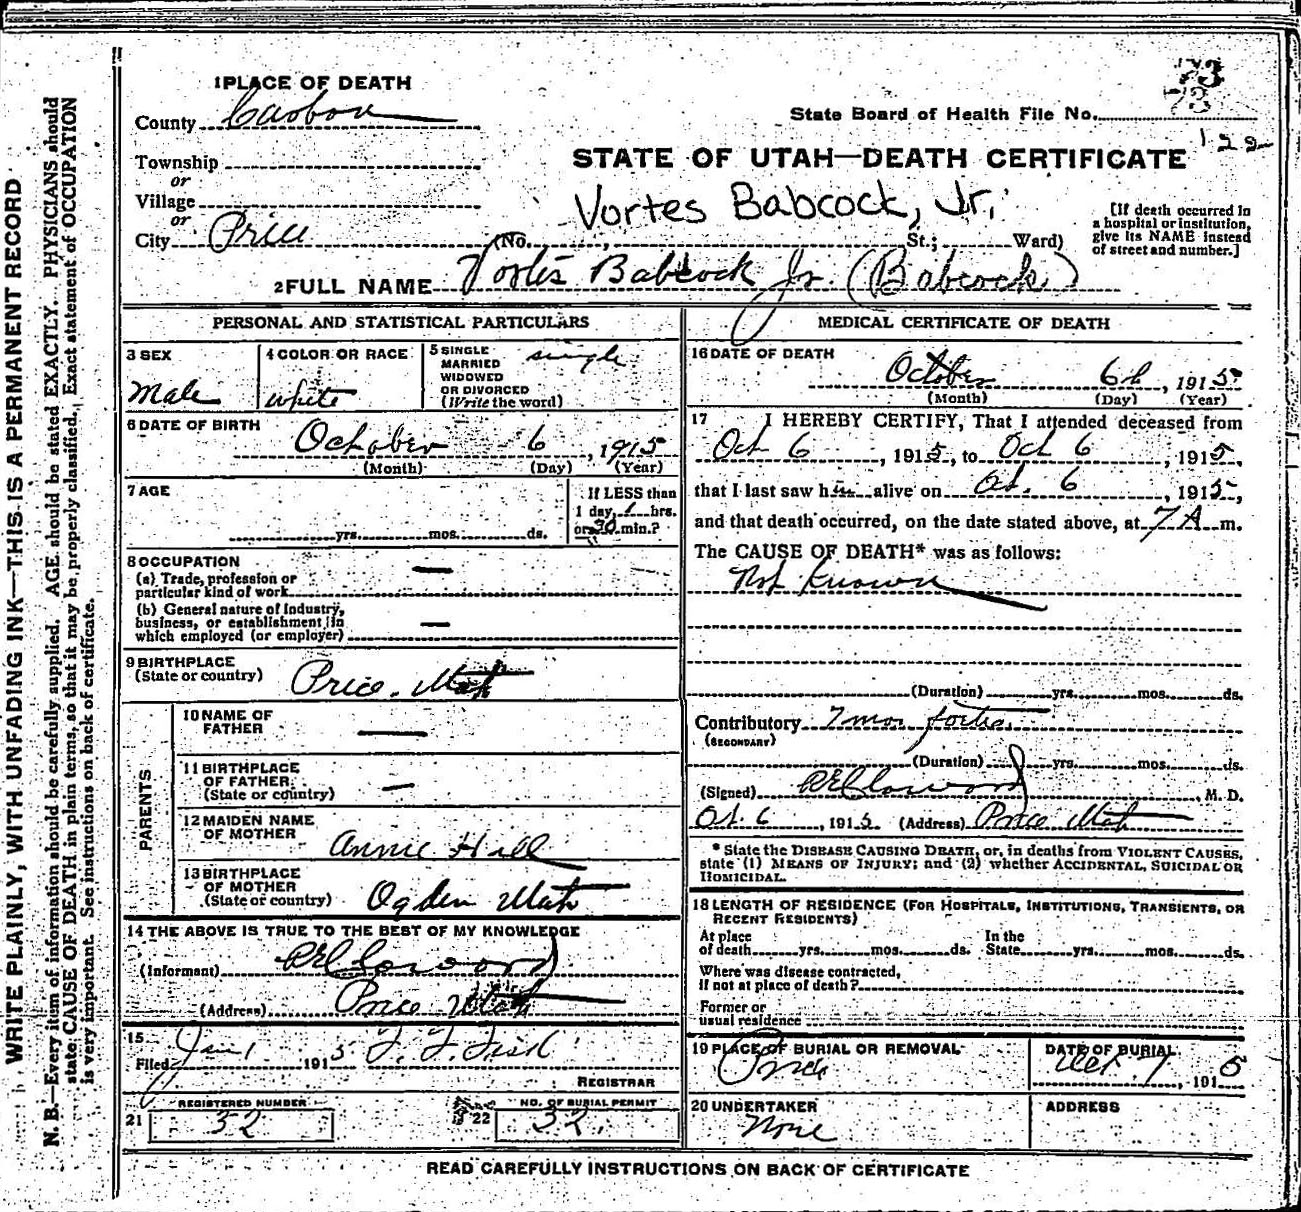 73
73
State Board of Health File No.
122
1 PLACE OF DEATH
County Carbon
Township
or
Village
or
City Price
STATE OF UTAH—DEATH CERTIFICATE
Vortes Babcock, Jr.
(No. , St.; Ward)
[If death occurred in
a hospital or institution,
give its NAME instead
of street and number.]
2 FULL NAME Vortes Babcock Jr. (Babcock)
PERSONAL AND STATISTICAL PARTICULARS
3 SEX
Male
4 COLOR OR RACE
white
5 SINGLE
MARRIED
WIDOWED
OR DIVORCED
(Write the word)
single
6 DATE OF BIRTH
October 6, 1915
(Month) (Day) (Year)
7 AGE
yrs. mos. ds.
If LESS than
1 day, 1 hrs.
or 30 min.?
8 OCCUPATION
(a) Trade, profession or
particular kind of work —
(b) General nature of Industry,
business, or establishment in
which employed (or employer) —
9 BIRTHPLACE
(State or country) Price. Utah
PARENTS
10 NAME OF
FATHER —
11 BIRTHPLACE
OF FATHER
(State or country) —
12 MAIDEN NAME
OF MOTHER Annie Hill
13 BIRTHPLACE
OF MOTHER
(State or country) Ogden Utah
14 THE ABOVE IS TRUE TO THE BEST OF MY KNOWLEDGE
(Informant)
(Address) Price Utah
15
Filed Jan 1 1915
REGISTRAR
21 REGISTERED NUMBER
32
22 NO. OF BURIAL PERMIT
32.
MEDICAL CERTIFICATE OF DEATH
16 DATE OF DEATH
October 6th, 1915
(Month) (Day) (Year)
17 I HEREBY CERTIFY, That I attended deceased from
Oct 6, 1915, to Oct 6, 1915,
that I last saw him alive on Oct. 6, 1915,
and that death occurred, on the date stated above, at 7 A m.
The CAUSE OF DEATH* was as follows:
Not Known
(Duration) yrs. mos. ds.
Contributory 7 mos foetus
(SECONDARY)
(Duration) yrs. mos. ds.
(Signed) , M. D.
Oct. 6, 1915 (Address) Price Utah
* State the DISEASE CAUSING DEATH, or, in deaths from VIOLENT CAUSES,
state (1) MEANS OF INJURY; and (2) whether ACCIDENTAL, SUICIDAL OR
HOMICIDAL.
18 LENGTH OF RESIDENCE (FOR HOSPITALS, INSTITUTIONS, TRANSIENTS, OR
RECENT RESIDENTS)
At place In the
of death yrs. mos. ds. State yrs. mos. ds.
Where was disease contracted,
If not at place of death?
Former or
usual residence
19 PLACE OF BURIAL OR REMOVAL
Price
DATE OF BURIAL
Oct. 7, 1915
20 UNDERTAKER
None
ADDRESS
READ CAREFULLY INSTRUCTIONS ON BACK OF CERTIFICATE
WRITE PLAINLY, WITH UNFADING INK—THIS IS A PERMANENT RECORD
N. B.—Every item of information should be carefully supplied. AGE should be stated EXACTLY. PHYSICIANS should
state CAUSE OF DEATH in plain terms, so that it may be properly classified. Exact statement of OCCUPATION
is very important. See instructions on back of certificate.